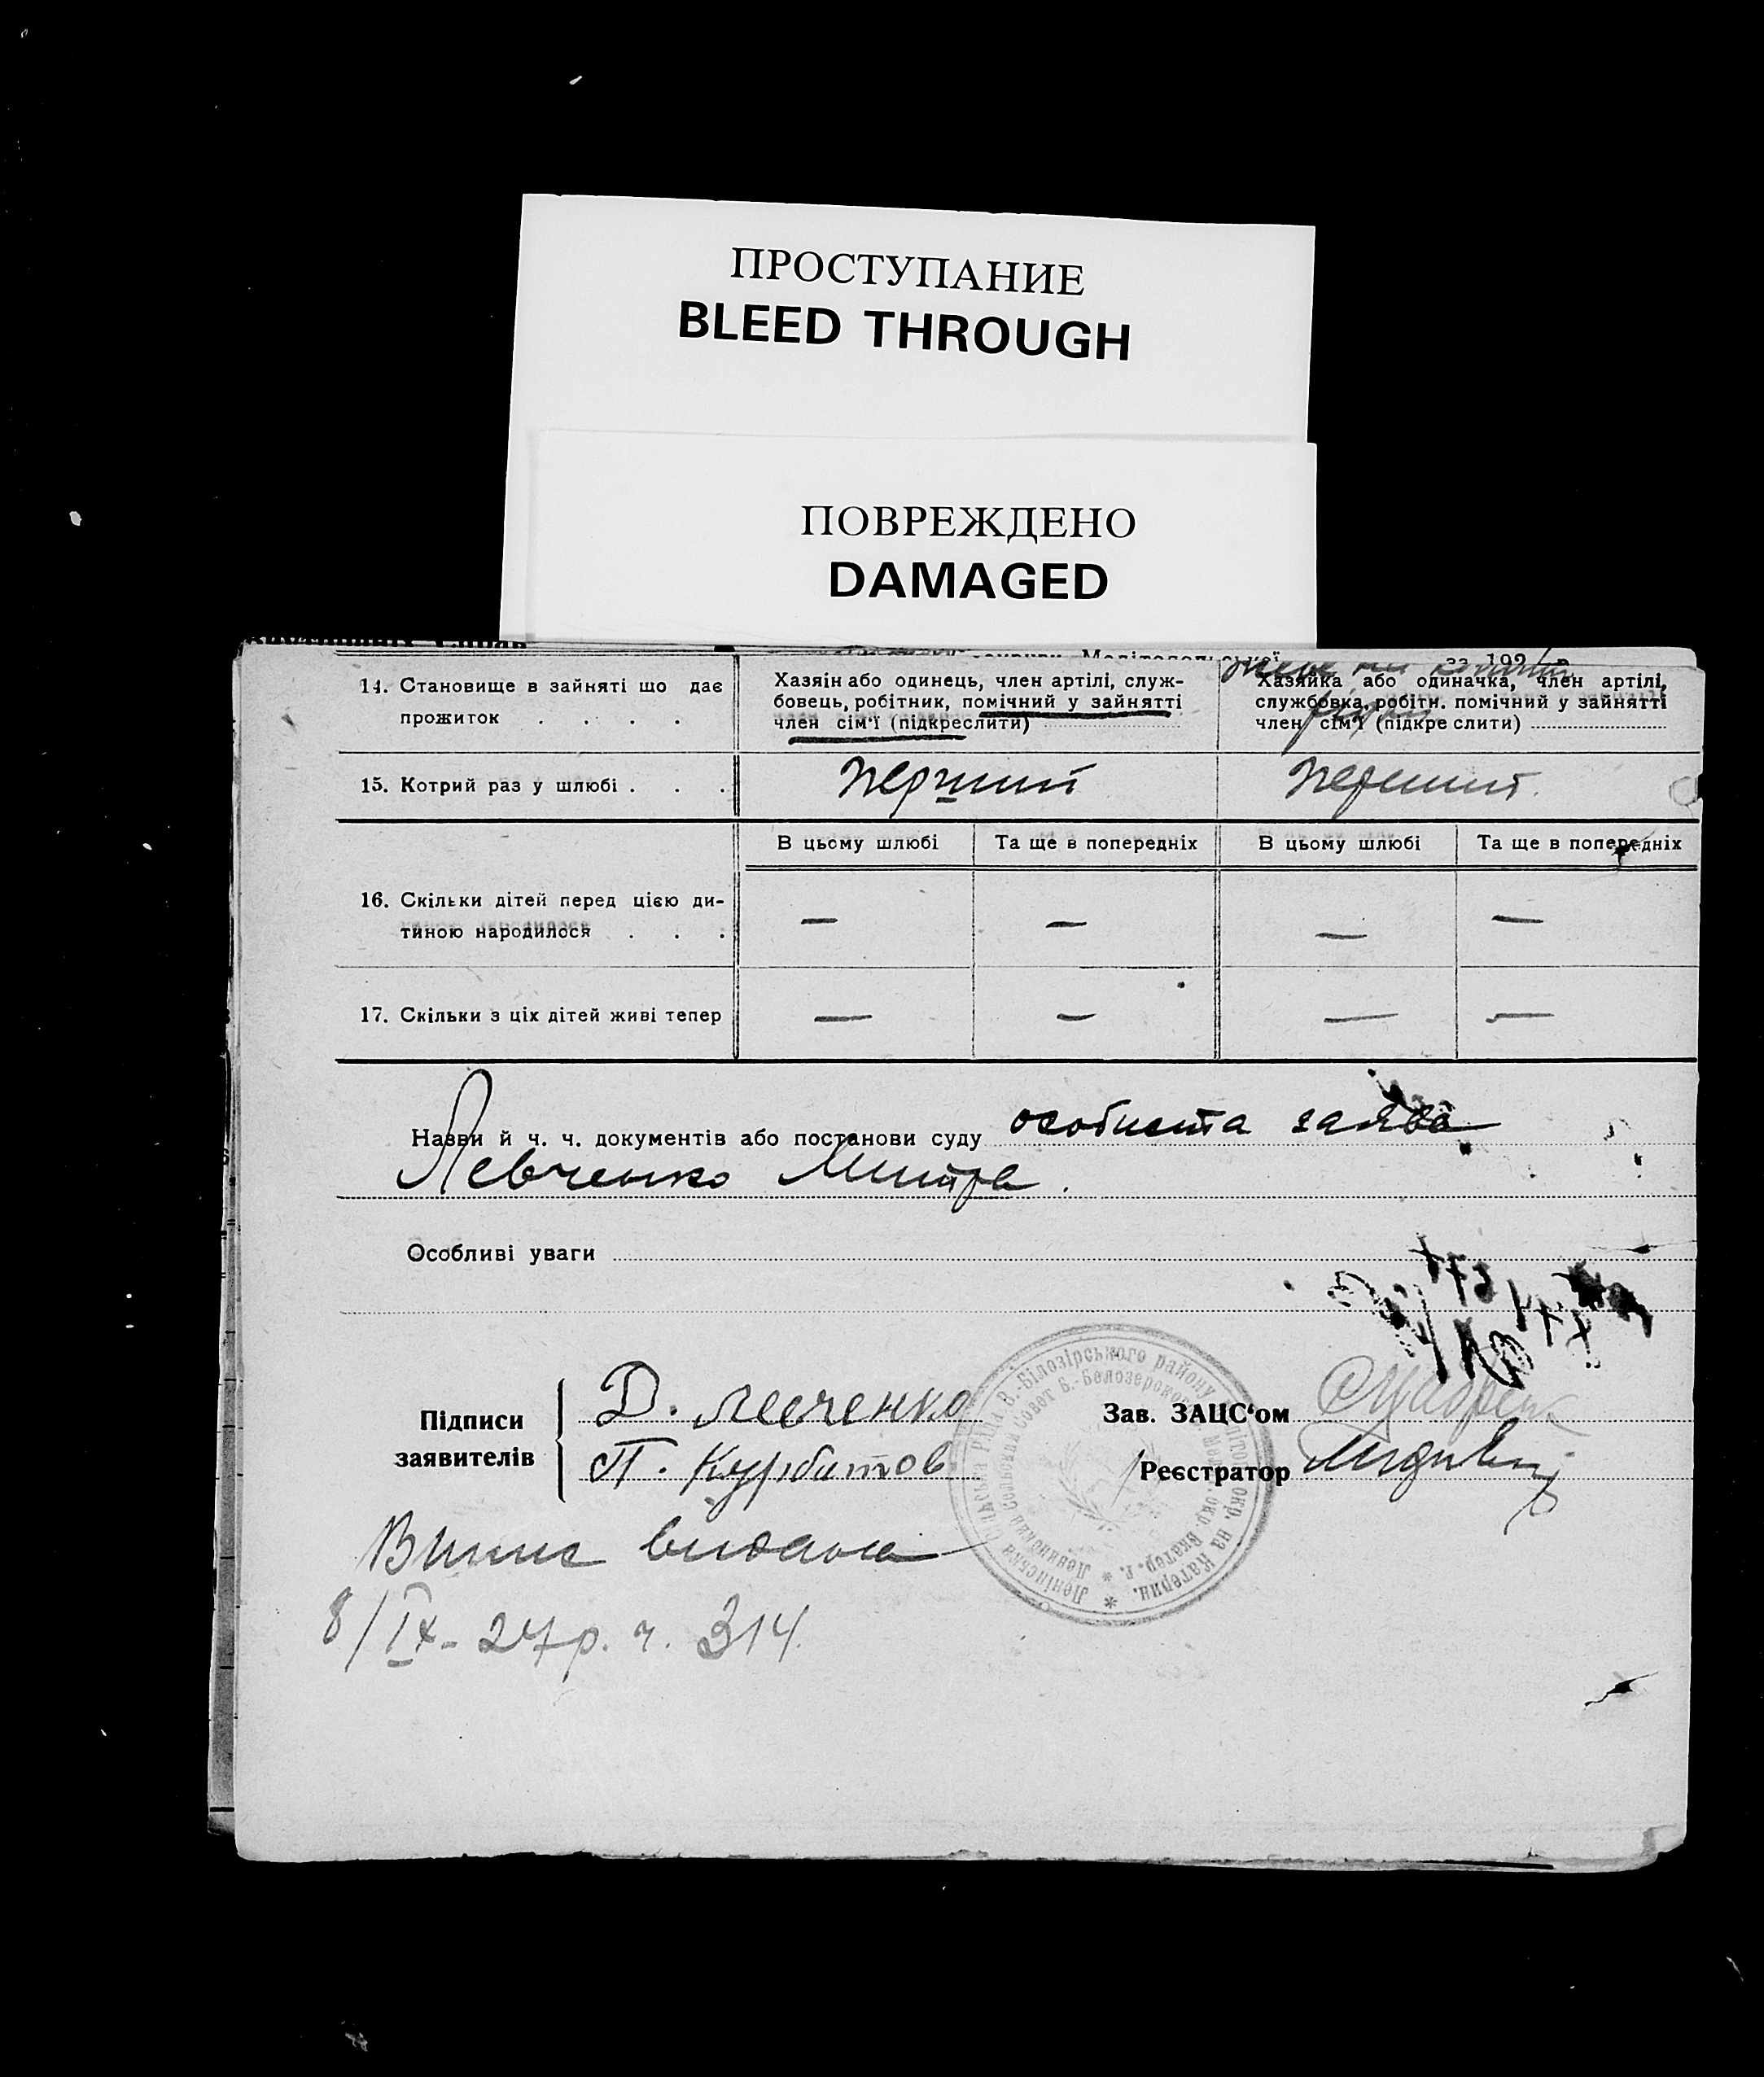 ПРОСТУПАНИЕ
BLEED THROUGH
ПОВРЕЖДЕНО
DAMAGED
за 192 р
14. Становище в зайняті що дає
прожиток . . . .
Хазяін або одинець, член артілі, служ-
бовець, робітник, помічний у зайнятті
член сім'ї (підкреслити)
Хазяйка або одиначка, член артілі,
службовка, робітн. помічний у зайнятті
член сім'ї (підкре слити)
15. Котрий раз у шлюбі . . .
перший
перший.
В цьому шлюбі Та ще в попередніх В цьому шлюбі Та ще в попередніх
16. Скільки дітей перед цією ди-
тиною народилося . . .
— — — —
17. Скільки з ціх дітей живі тепер
— — — —
Назви й ч. ч. документів або постанови суду особиста заява
Левченко Митра.
Особливі уваги
Підписи
заявителів
Д. Левченко
П. Курбатов
Зав. ЗАЦС'ом
Реєстратор
Ленінська Сільська Рада В.-Білозірського району окр. на Катерин.
Випис видана
8/IX- 27р. ч. 314.